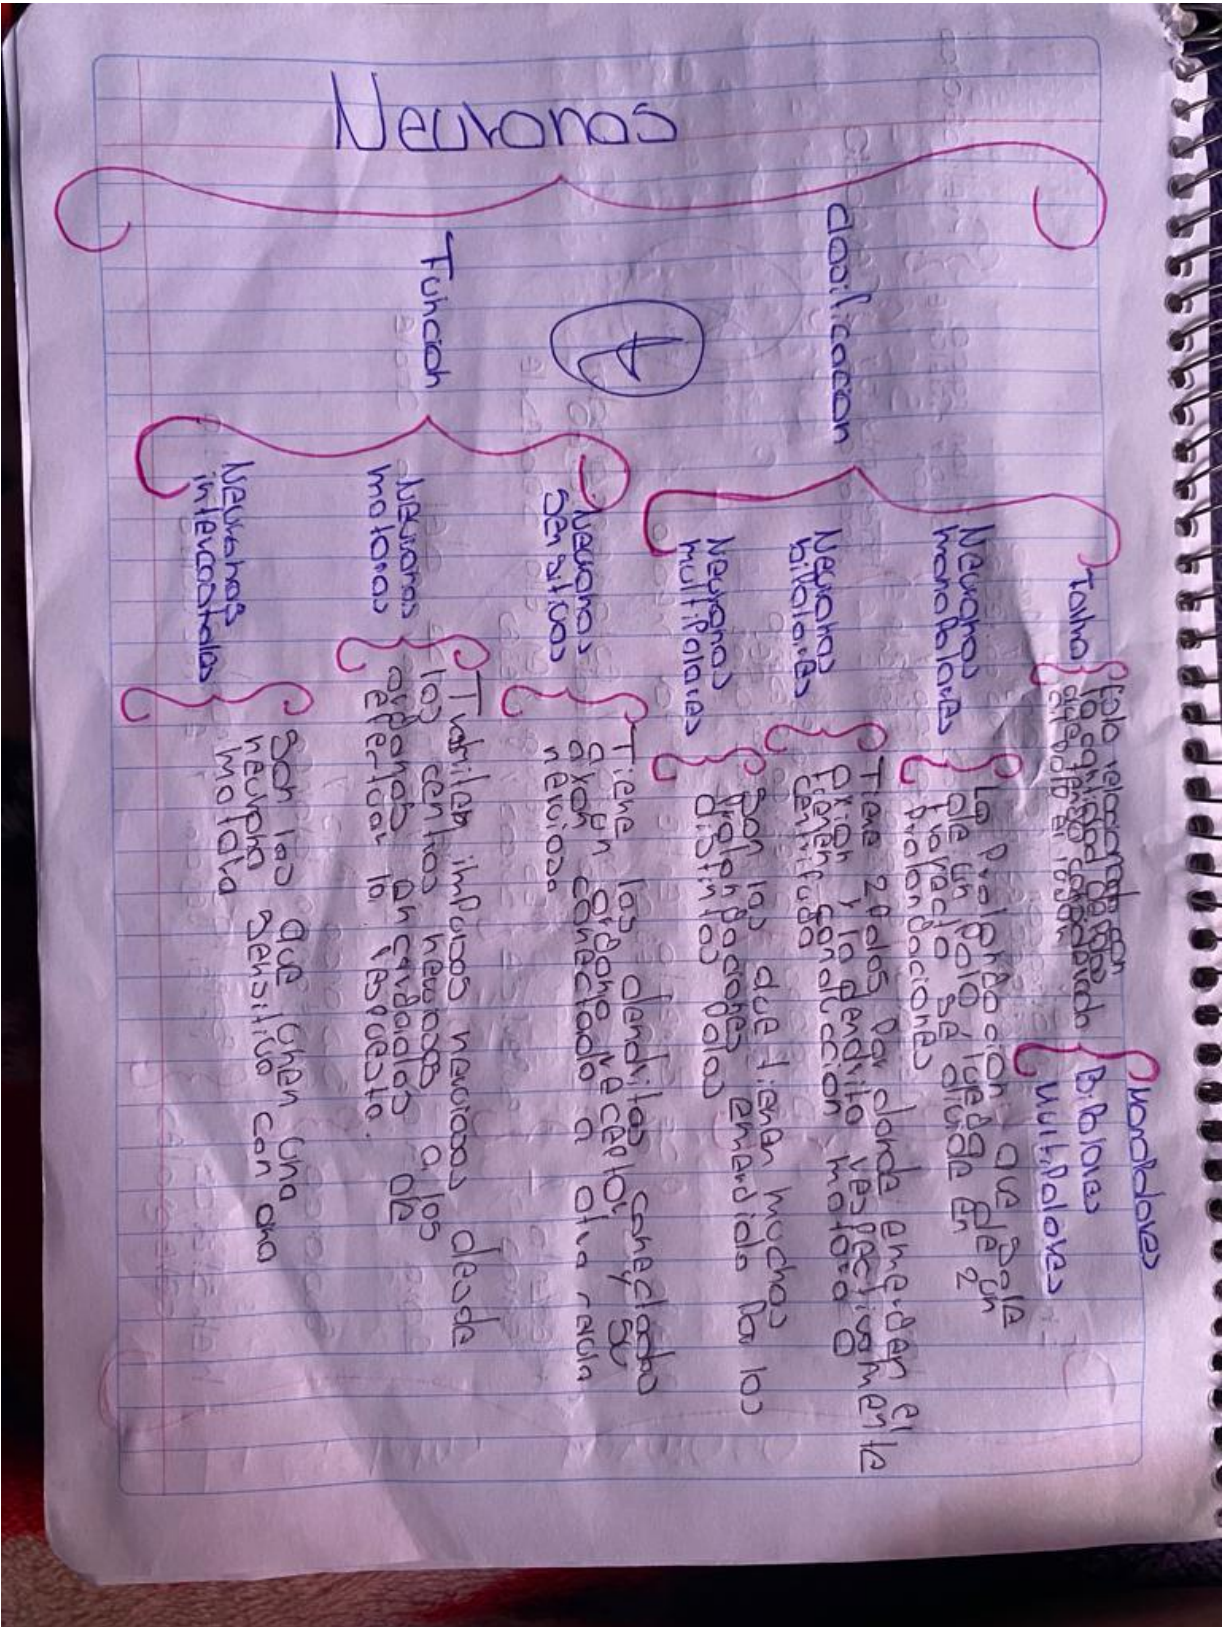 Neuronas
1
clasificacion
Tamaño
Esta relacionada con
la cantidad de polos
que tenga dependiendo
de donde el
Monopolares
Bipolares
Multipolares
Neuronas
monopolares
La prolongacion que sale
de un polo, luego de un
trayecto se divide en 2
prolongaciones
Neuronas
bipolares
Tiene 2 polos por donde emergen el
axion y la dendrita respectivamente
tienen conduccion motora o
centrifuga
Neuronas
multipolares
Son las que tienen muchas
prolongaciones emergido por los
distintos polos
Funcion
Neuronas
sensitivas
Tiene las dendritas conectadas
a un organo receptor y su
axon conectado a otra
nerviosa
Neuronas
motoras
impulsos nerviosos desde
los centros nerviosos a los
organos encargados de
efectuar la respuesta.
Neuronas
intercaladas
Son las que unen una
neurona sensitiva con una
motora